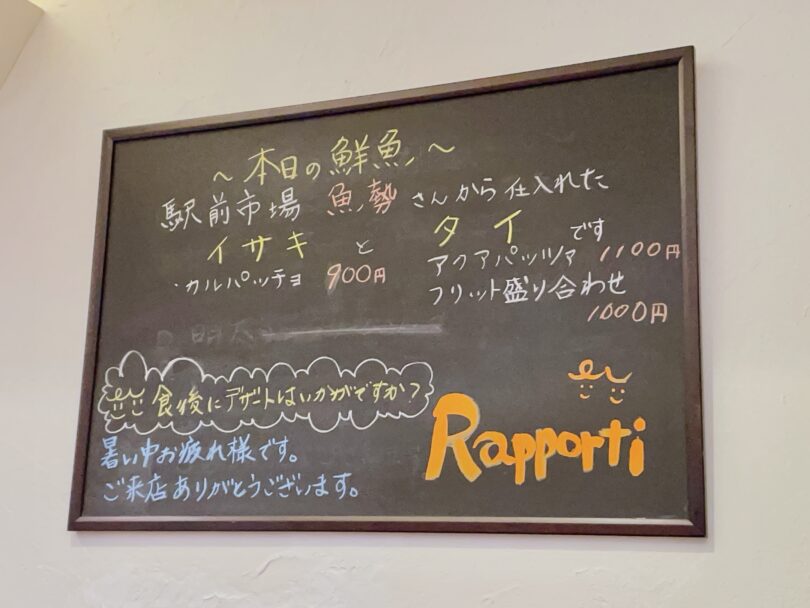 ～本日の鮮魚～
駅前市場 魚勢さんから仕入れた
イサキ と タイ です
・カルパッチョ 900円
アクアパッツァ 1100円
フリット盛り合わせ
1000円
食後にデザートはいかがですか?
暑い中お疲れ様です。
ご来店ありがとうございます。
Rapporti